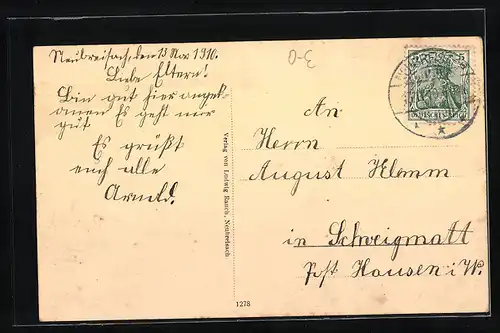 Neubreisach, den 13 Nov 1910.
Liebe Eltern!
Bin gut hier angek-
omen Es geht mir
gut
Es grüßt
euch alle
Arnold.
3-0
Verlag von Ludwig Rauch, Neubreisach
An
Herrn
August Klemm
in Schweigmatt
Post Hausen i. W.
DEUTSCHES REICH
1278